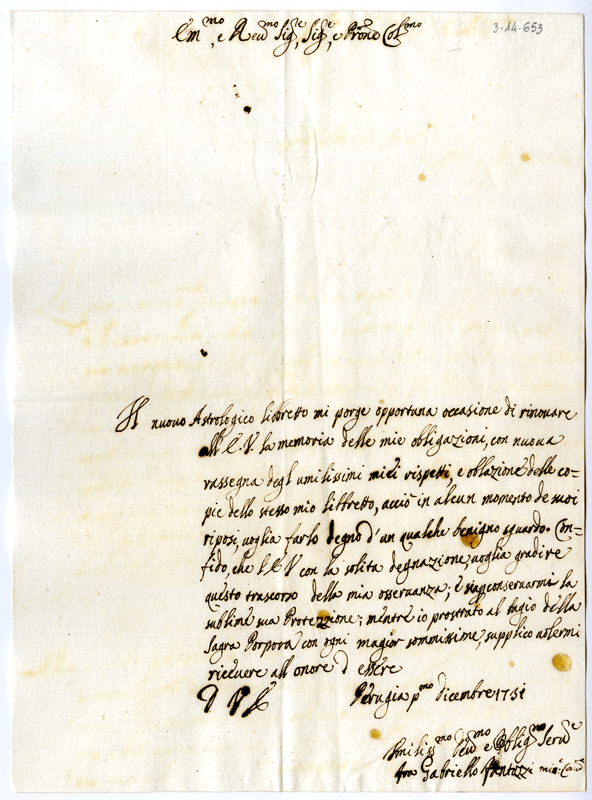 Em.mo, e Reu.mo Sig.re, Sig.re, e Prone Col.mo
3-14-653
Il nuovo Astrologico libbretto mi porge opportuna occasione di rinouare
all'E.V. la memoria delle mie obligazioni, con nuoua
rassegna degl'umilissimi miei rispetti, e oblazione delle co=
pie dello stesso mio libbretto, acciò in alcun momento de suoi
riposi, uoglia farlo degno d'un qualche benigno sguardo. Con=
fido, che l'E.V con la solita degnazione, uoglia gradire
questo trascorso della mia osseruanza; e conseruarmi la
sublime sua Protezzione; mentre io prostrato al bagio della
Sagra Porpora con ogni magior sommissione, supplico uolermi
riceuere all'onore d'essere
D V E
Perugia p.mo Dicembre 1731
Umiliss.mo Deu.mo e Oblig.mo Seru.e
fra Gabriello Fantozzi min: Con: